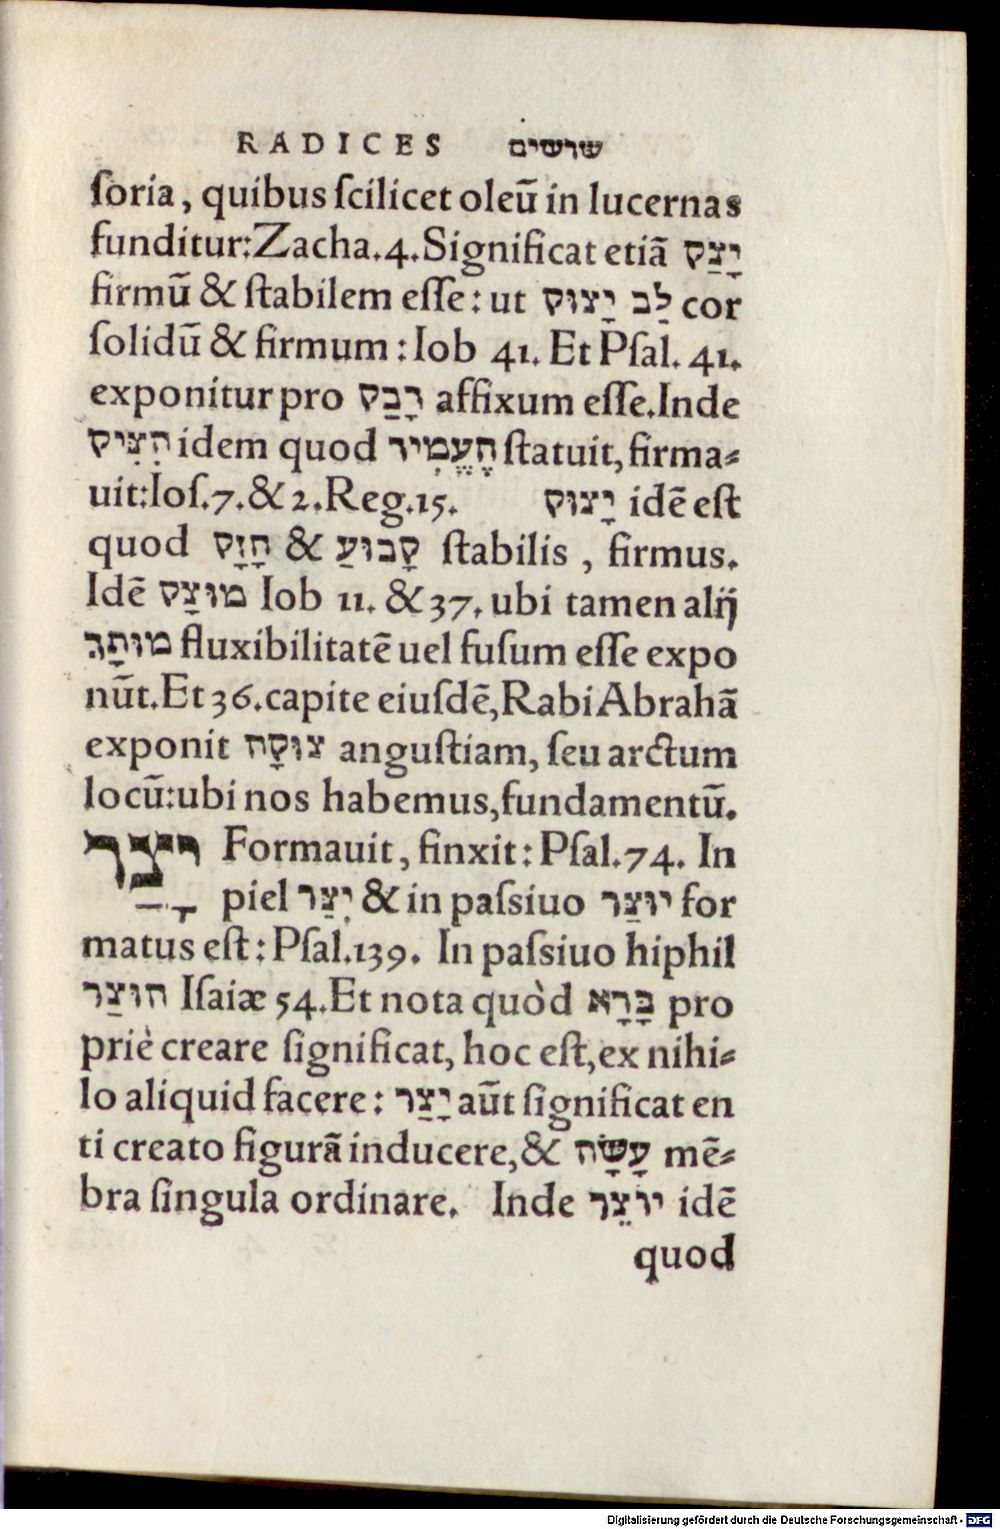 RADICES שרשים
ſoria, quibus ſcilicet oleū in lucernas
funditur:Zacha.4.Significat etiā יָצַק
firmū & ſtabilem eſſe: ut לַב יָצוּק cor
ſolidū & firmum : Iob 41. Et Pſal. 41.
exponitur pro רָבַק affixum eſſe.Inde
הִצִּיק idem quod הֶעֱמִיד ſtatuit, firma⸗
uit:Ioſ.7.& 2.Reg.15. יָצוּק idē eſt
quod חָזָק & קָבוּעַ ſtabilis , firmus.
Idē מוּצָק Iob 11. & 37. ubi tamen alij
מוּתָךְ fluxibilitatē uel fuſum eſſe expo
nūt.Et 36.capite eiuſdē, Rabi Abrahā
exponit צוּקָה anguſtiam, ſeu arctum
locū:ubi nos habemus,fundamentū.
יָצַר Formauit, finxit: Pſal.74. In
piel יִצַר & in paſsiuo יוּצַר for
matus eſt : Pſal.139. In paſsiuo hiphil
הוּצַר Iſaiæ 54.Et nota quòd בָּרָא pro
priè creare ſignificat, hoc eſt, ex nihi⸗
lo aliquid facere : יָצַר aūt ſignificat en
ti creato figurā inducere,& עָשָׂה mē⸗
bra ſingula ordinare. Inde יוֹצֵר idē
quod
Digitalisierung gefördert durch die Deutsche Forschungsgemeinschaft - DFG